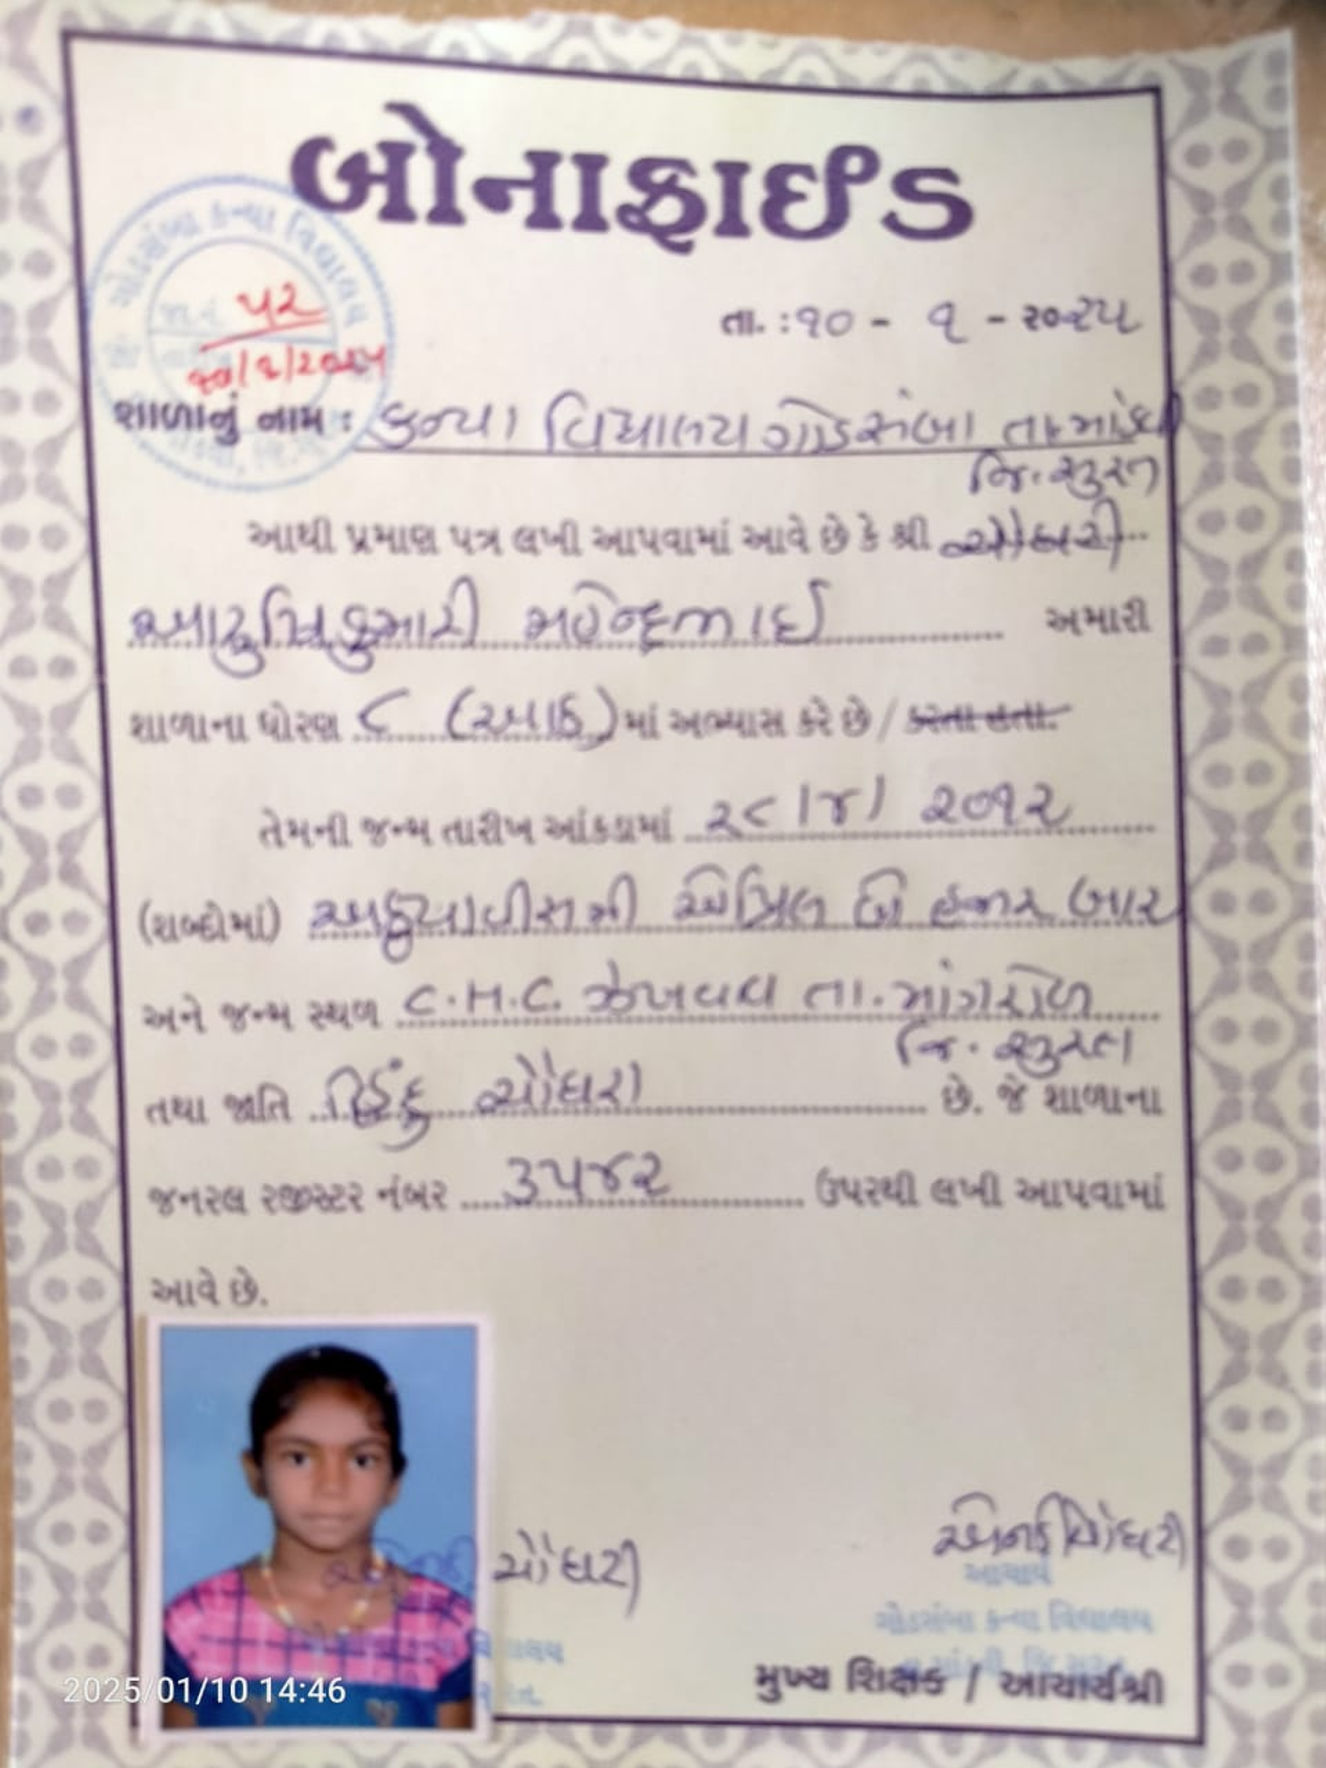 બોનાફાઈડ
ગોડસંબા કન્યા વિદ્યાલય
જા.નં. ૫૨
૧૦/૧/૨૦૨૫
તા. : ૧૦ - ૧ - ૨૦૨૫
શાળાનું નામ : કન્યા વિદ્યાલય ગોડસંબા તા. માંડવી
જિ. સુરત
આથી પ્રમાણ પત્ર લખી આપવામાં આવે છે કે શ્રી ચૌધરી
મહેન્દ્રભાઈ અમારી
શાળાના ધોરણ ૮ (આઠ) માં અભ્યાસ કરે છે / કરતા હતા.
તેમની જન્મ તારીખ આંકડામાં ૨૮/૪/ ૨૦૧૨
(શબ્દોમાં) અઠ્ઠયાવીસમી એપ્રિલ બે હજાર બાર
અને જન્મ સ્થળ C.H.C. ઝંખવાવ તા. માંગરોળ
જિ. સુરત
તથા જાતિ હિંદુ ચૌધરી છે. જે શાળાના
જનરલ રજીસ્ટર નંબર ૩૫૪૨ ઉપરથી લખી આપવામાં
આવે છે.
ચૌધરી
ચૌધરી
આચાર્ય
ગોડસંબા કન્યા વિદ્યાલય
મુખ્ય શિક્ષક / આચાર્યશ્રી
2025/01/10 14:46